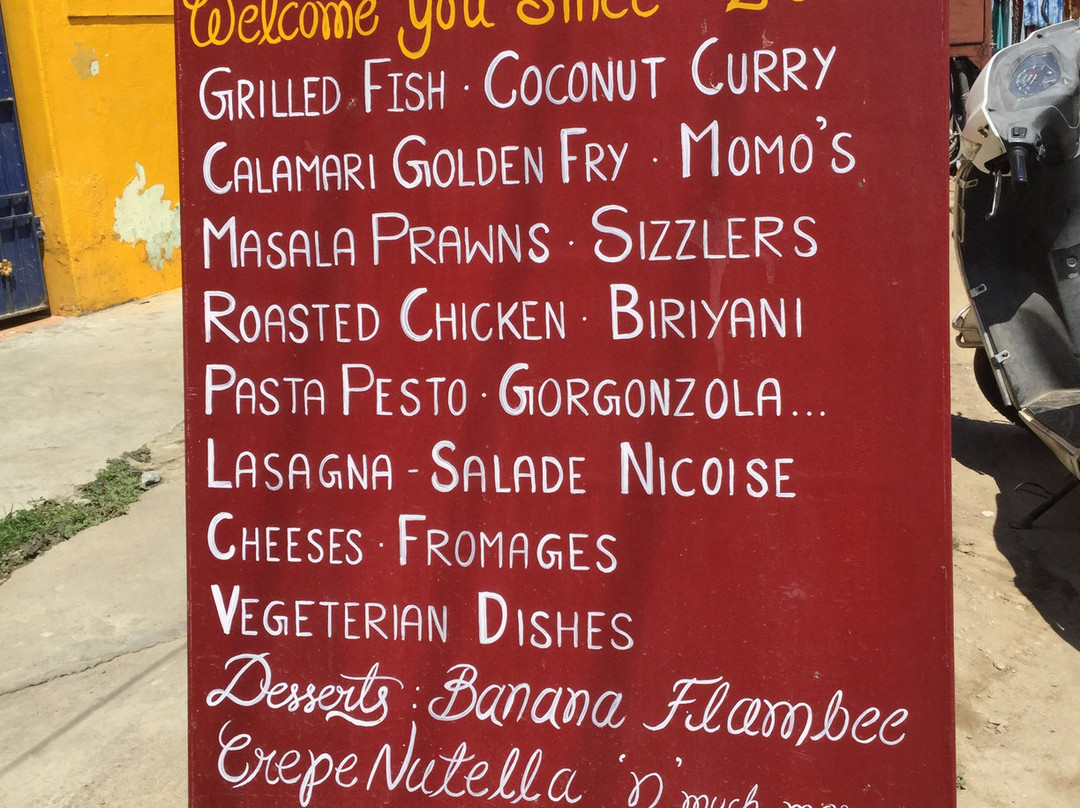 Welcome you Since
GRILLED FISH · COCONUT CURRY
CALAMARI GOLDEN FRY · MOMO'S
MASALA PRAWNS · SIZZLERS
ROASTED CHICKEN · BIRIYANI
PASTA PESTO · GORGONZOLA...
LASAGNA - SALADE NICOISE
CHEESES · FROMAGES
VEGETERIAN DISHES
Desserts : Banana Flambee
Crepe Nutella 'n' much